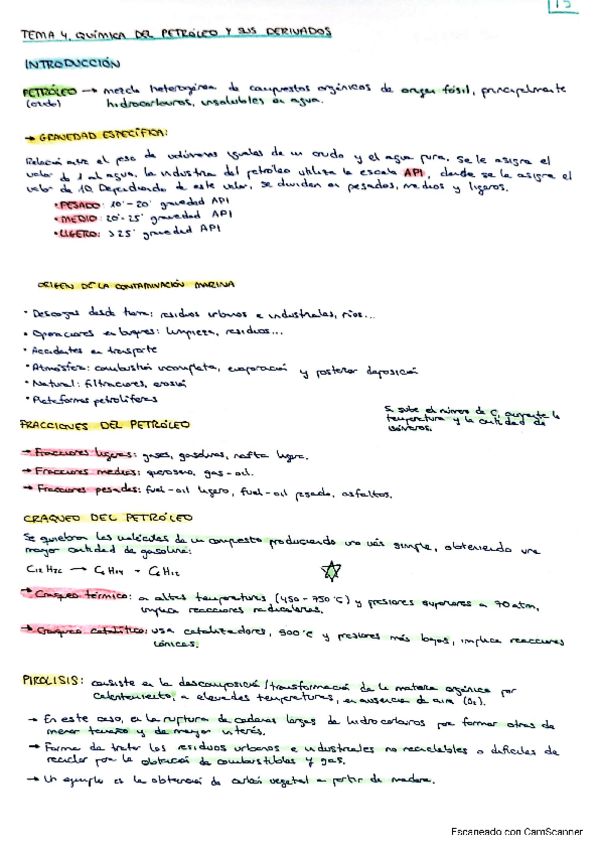 15
TEMA 4. QUÍMICA DEL PETRÓLEO Y SUS DERIVADOS
INTRODUCCIÓN
PETRÓLEO → mezcla heterogénea de compuestos orgánicos de origen fósil, principalmente
(crudo) hidrocarburos, insolubles en agua.
→ GRAVEDAD ESPECÍFICA:
Relación entre el peso de volúmenes iguales de un crudo y el agua pura, se le asigna el
valor de 1 al agua. La industria del petróleo utiliza la escala API, donde se le asigna el
valor de 10. Dependiendo de este valor, se dividen en pesados, medios y ligeros.
• PESADO: 10º-20º gravedad API
• MEDIO: 20º-25º gravedad API
• LIGERO: >25º gravedad API
ORIGEN DE LA CONTAMINACIÓN MARINA
• Descargas desde tierra: residuos urbanos e industriales, ríos...
• Operaciones en buques: limpieza, residuos...
• Accidentes en transporte
• Atmósfera: combustión incompleta, evaporación y posterior deposición
• Natural: filtraciones, erosión
• Plataformas petrolíferas
Si sube el número de C, aumenta la
temperatura y la cantidad de
isómeros.
FRACCIONES DEL PETRÓLEO
→ Fracciones ligeras: gases, gasolinas, nafta ligera.
→ Fracciones medias: queroseno, gas-oil.
→ Fracciones pesadas: fuel-oil ligero, fuel-oil pesado, asfaltos.
CRAQUEO DEL PETRÓLEO
Se quiebran las moléculas de un compuesto produciendo uno más simple, obteniendo una
mayor cantidad de gasolina:
C12 H26 → C6 H14 + C6 H12
→ Craqueo térmico: a altas temperaturas (450-750ºC) y presiones superiores a 70 atm,
implica reacciones radicalarias.
→ Craqueo catalítico: usa catalizadores, 500ºC y presiones más bajas, implica reacciones
iónicas.
PIROLISIS: consiste en la descomposición/transformación de la materia orgánica por
calentamiento, a elevadas temperaturas, en ausencia de aire (O2).
→ En este caso, es la ruptura de cadenas largas de hidrocarburos por formar otras de
menor tamaño y de mayor interés.
→ Forma de tratar los residuos urbanos e industriales no reciclables o difíciles de
reciclar por la obtención de combustibles y gas.
→ Un ejemplo es la obtención de carbón vegetal a partir de madera.
Escaneado con CamScanner